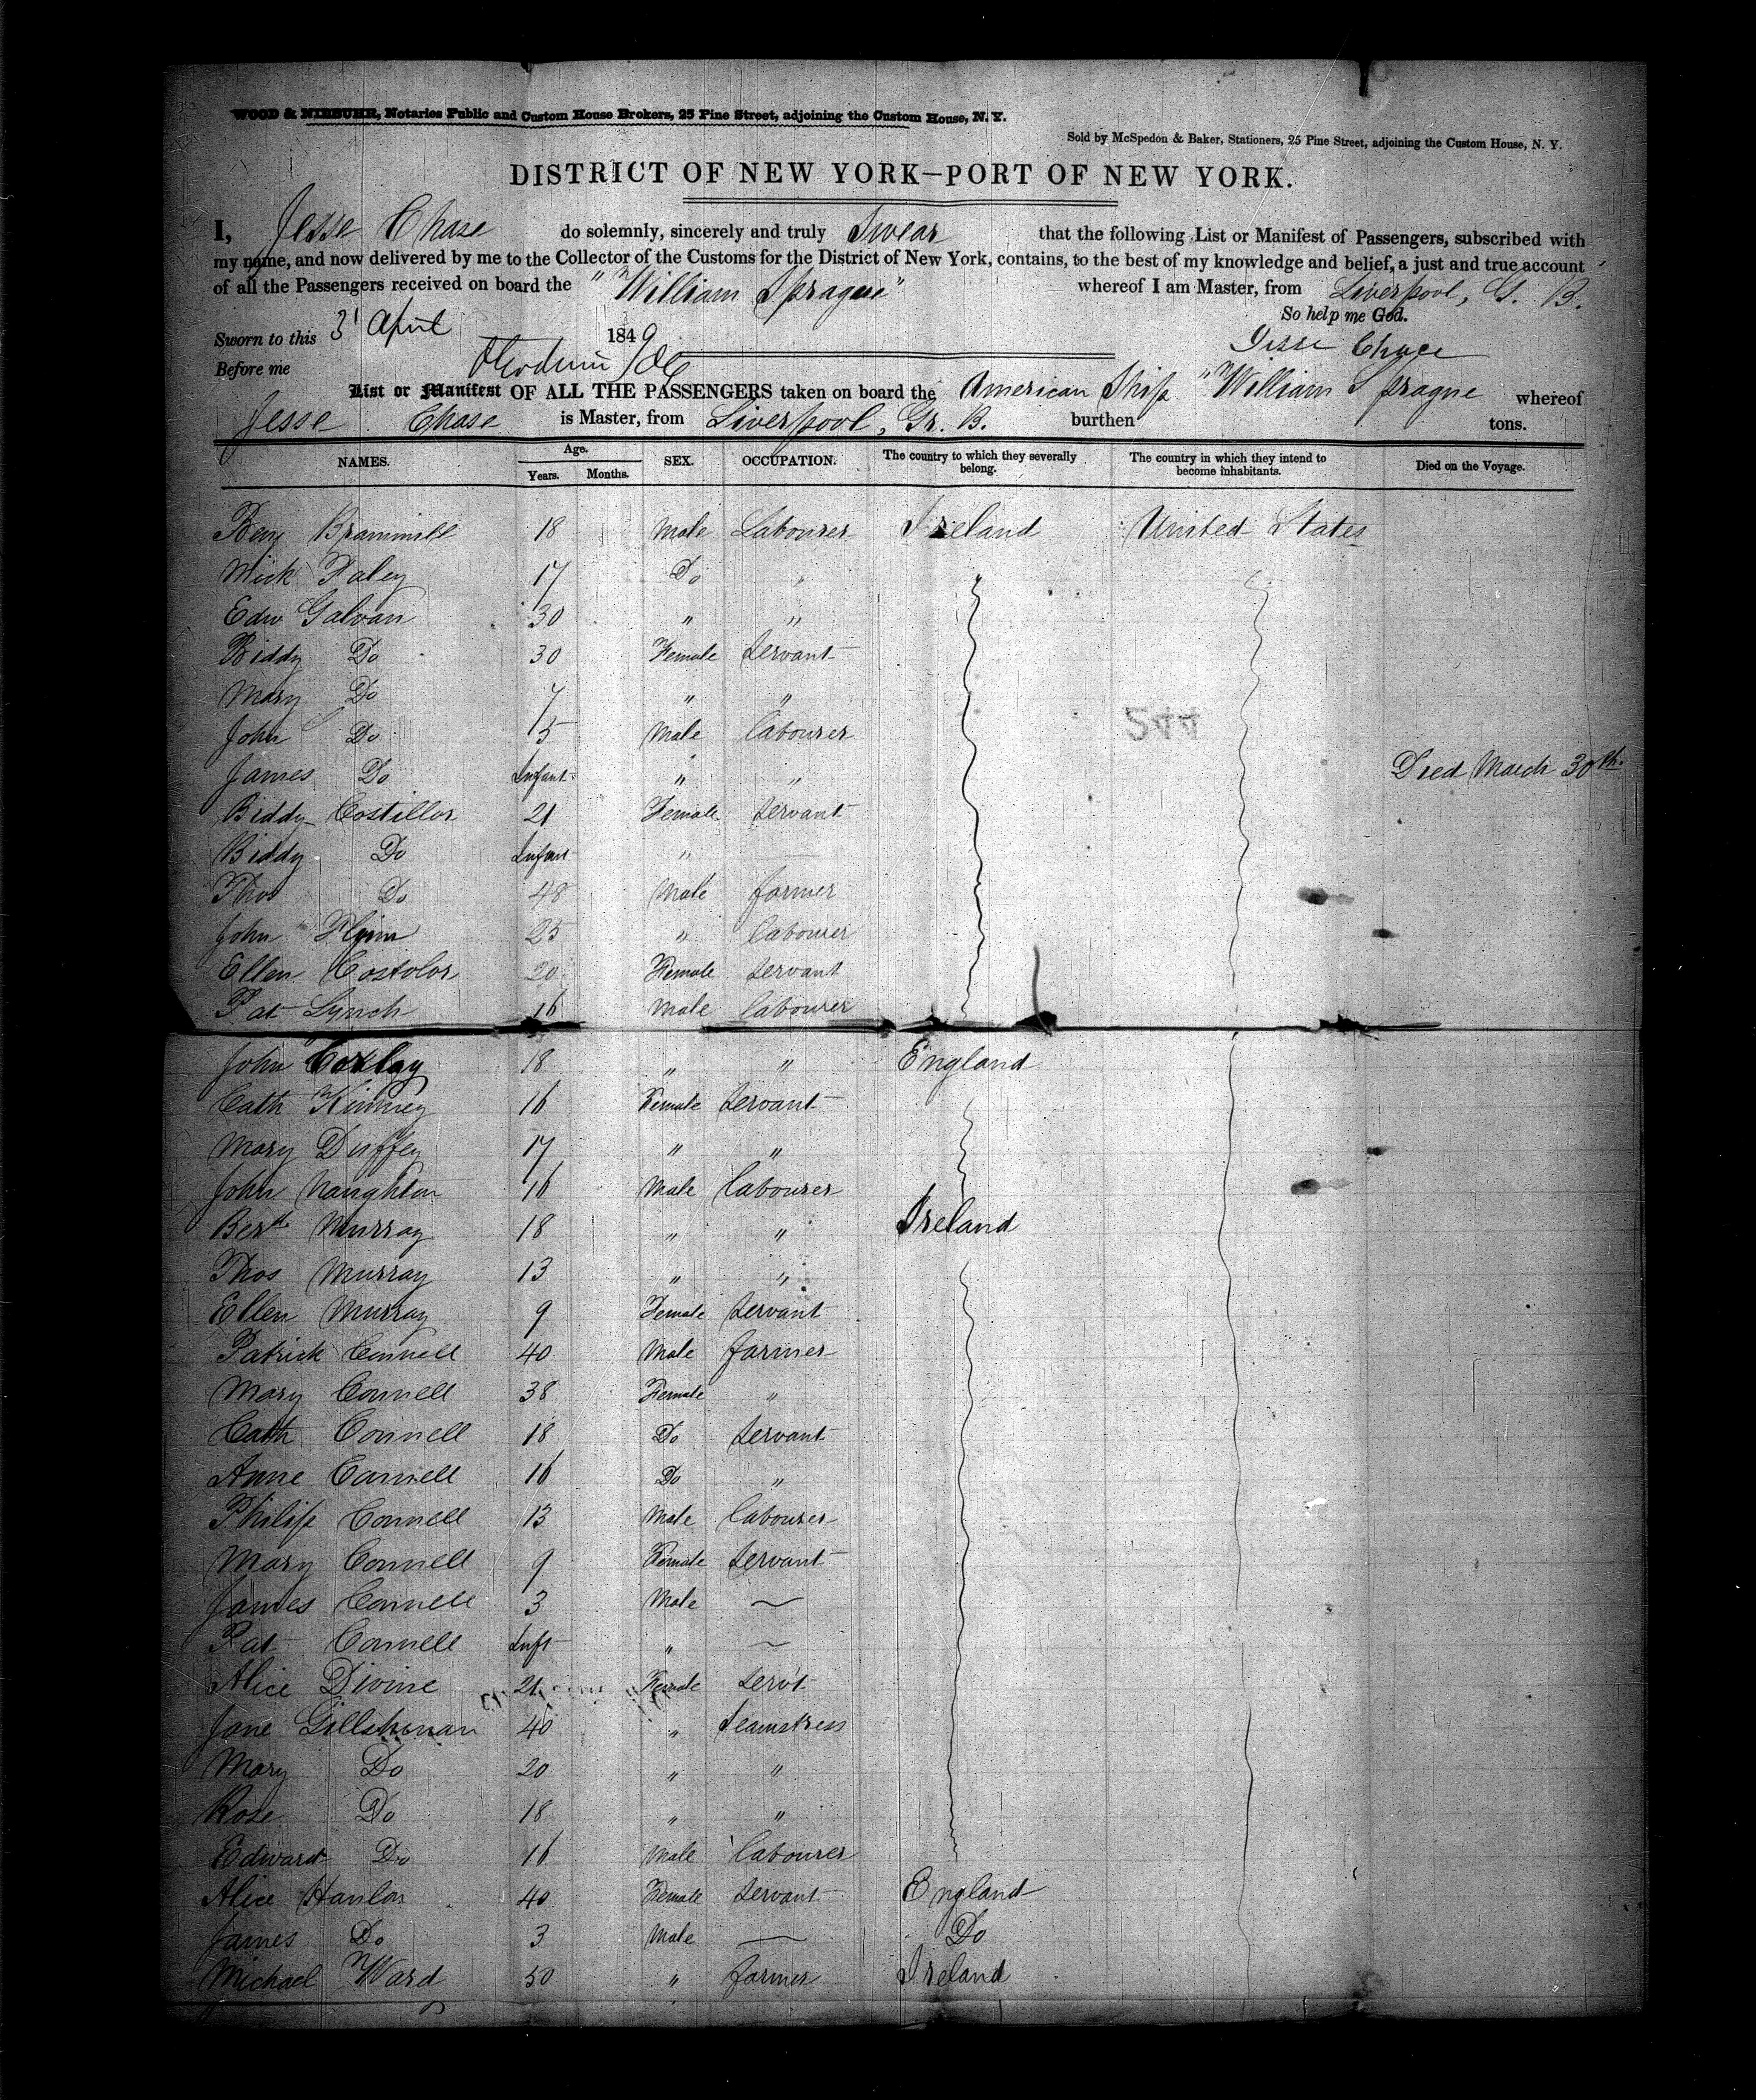 WOOD & NIEBUHR, Notaries Public and Custom House Brokers, 25 Pine Street, adjoining the Custom House, N. Y.
Sold by McSpedon & Baker, Stationers, 25 Pine Street, adjoining the Custom House, N. Y.
DISTRICT OF NEW YORK—PORT OF NEW YORK.
I, Jesse Chase do solemnly, sincerely and truly Swear that the following List or Manifest of Passengers, subscribed with
my name, and now delivered by me to the Collector of the Customs for the District of New York, contains, to the best of my knowledge and belief, a just and true account
of all the Passengers received on board the "William Sprague" whereof I am Master, from Liverpool, G. B.
So help me God.
Sworn to this 3 April 1849 Jesse Chace
Before me
List or Manifest OF ALL THE PASSENGERS taken on board the American Ship "William Sprague whereof
Jesse Chase is Master, from Liverpool, Gr. B. burthen tons.
NAMES. Age. Years. Months. SEX. OCCUPATION. The country to which they severally belong. The country in which they intend to become inhabitants. Died on the Voyage.
18 Male Labourer Ireland United States
Mick Faley 17 Do "
Edw Galvan 30 " "
Biddy Do 30 Female Servant
Mary Do 7 " "
544
John Do 5 Male labourer
James Do Infant " " Died March 30th.
Biddy Costillor 21 Female Servant
Biddy Do Infant "
Thos Do 48 Male farmer
John Flynn 25 " labourer
Ellen Costolor 20 Female Servant
Pat Lynch 16 Male labourer
John 18 " " England
Cath Kinney 16 Female Servant
Mary Duffey 17 " "
John Naughton 16 Male labourer
Murray 18 " " Ireland
Thos Murray 13 " "
Ellen Murray 9 Female Servant
Patrick Connell 40 Male farmer
Mary Connell 38 Female "
Cath Connell 18 Do Servant
Anne Connell 16 Do "
Philip Connell 13 Male labourer
Mary Connell 9 Female Servant
James Connell 3 Male —
Pat Connell Inft " —
Alice Divine 21 Female Servt
Jane Gillshenan 40 " Seamstress
Mary Do 20 " "
Rose Do 18 " "
Edward Do 16 Male labourer
Alice Hanlon 40 Female Servant England
James Do 3 Male — Do
Michael Ward 50 " farmer Ireland